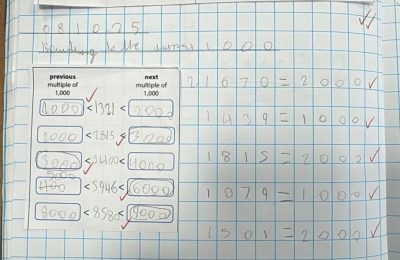 081025
Rounding to the nearest 1000
previous multiple of 1,000
next multiple of 1,000
1000 < 1321 < 2000
2000 < 2815 < 3000
3000 < 3400 < 4000
5000
< 5946 < 6000
8000 < 8580 < 9000
21070 = 2000
1439 = 1000
1815 = 2000
1079 = 1000
1501 = 2000